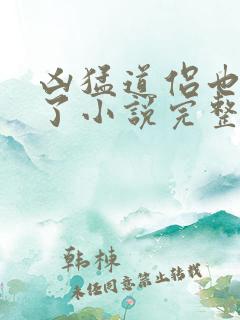 凶猛道侣也
了小说完整
韩栋
未经同意禁止转载